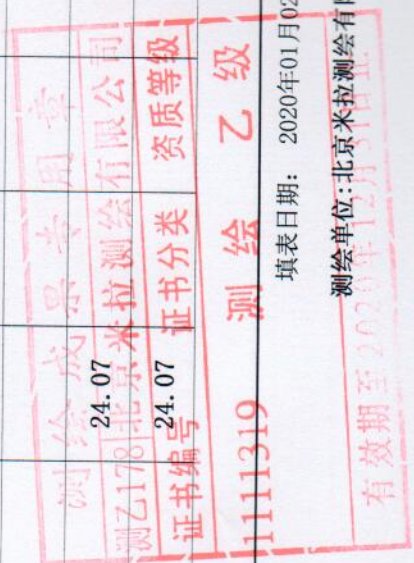 测绘成果专用章
测乙178 北京米拉测绘有限公司
证书编号 证书分类 资质等级
1111319 测绘 乙级
有效期至2020年12月31日止
24.07
24.07
填表日期: 2020年01月02
测绘单位:北京米拉测绘有